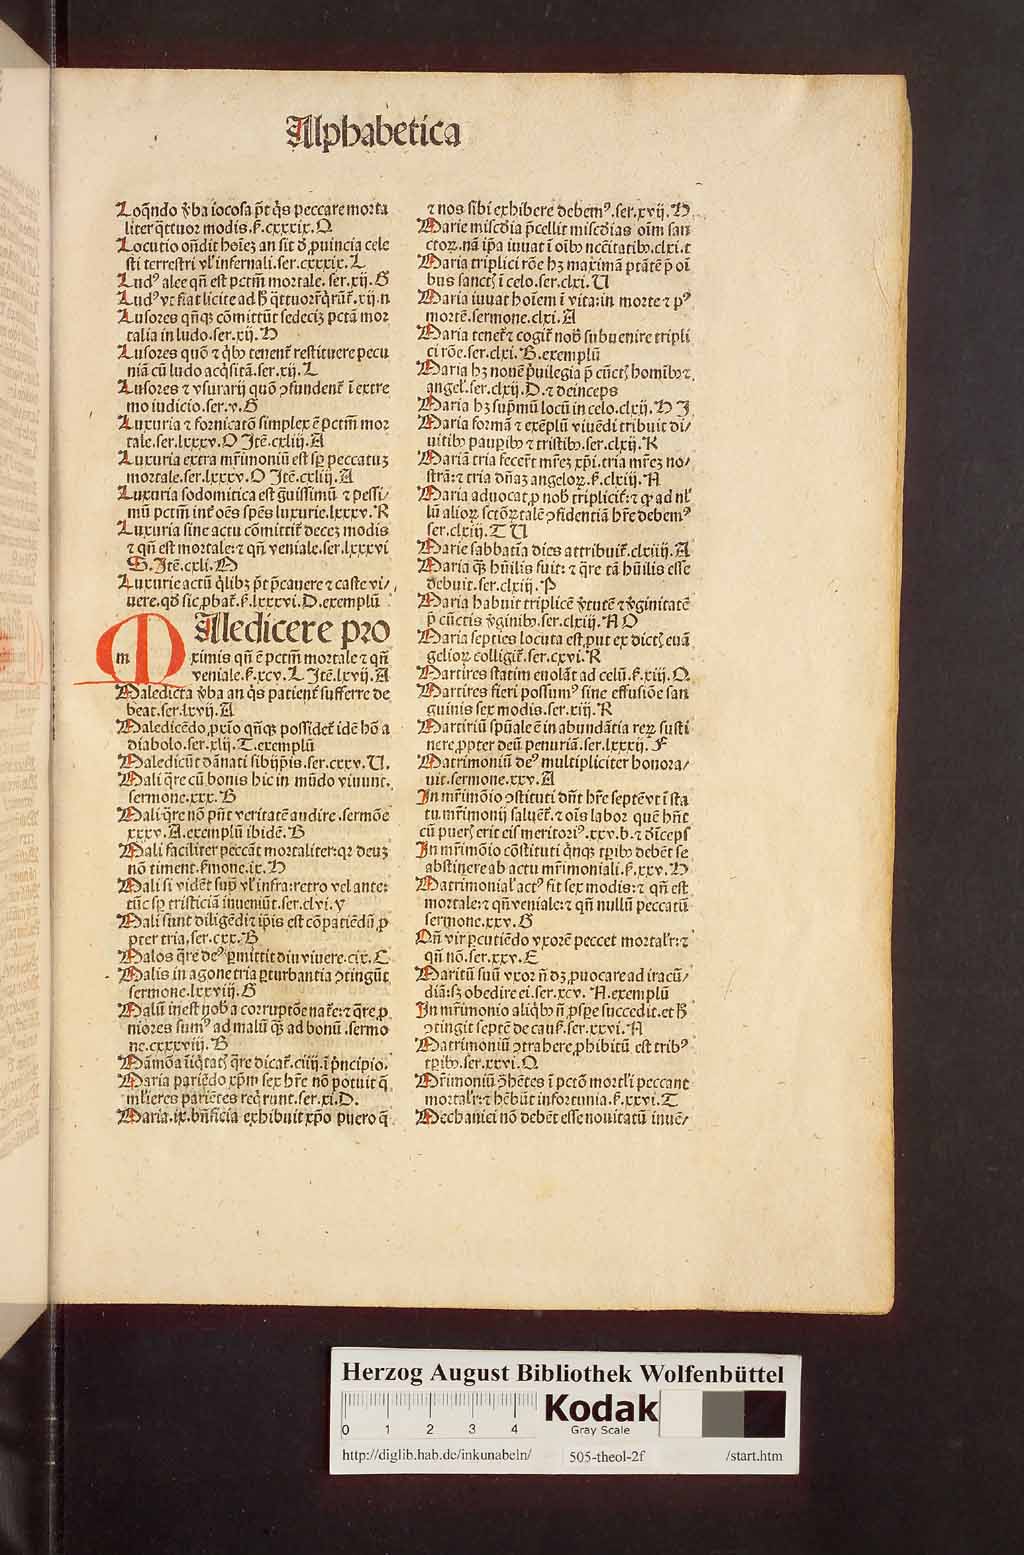 Alphabetica
Loq̃ndo v̓ba iocosa p̃t q̃s peccare morta
liter q̃ttuor modis.ẞ.cxxxix.Q
Locutio oñdit hoĩeꝫ an sit d̓ ꝓuincia cele
sti terrestri vl̓ infernali.ser.cxxxix.L
Ludꝰ alee qñ est pctm̃ mortale. ser.xij.G
Lusores qñqꝫ cõmittũt sedeciꝫ pctã mor
talia in ludo.ser.xij.H
Lusores quõ ⁊ q̓bꝰ tenent̃ restituere pecu
niã cũ ludo acq̓sitã.ser.xij.L
Lusores ⁊ vsurarij quõ ꝯfundent̃ ĩ extre
mo iudicio.ser.v.G
Luxuria ⁊ fornicatõ simplex ẽ pctm̃ mor
tale.ser.lxxxv.O Itẽ.cxliij.A
Luxuria extra mr̃imoniũ est sꝑ peccatuꝫ
mortale.ser.lxxxv.O Itẽ.cxliij.A
Luxuria sodomitica est g̃uissimũ ⁊ pessi/
mũ pctm̃ int̓ oẽs spẽs luxurie.lxxxv.R
Luxuria sine actu cõmittit̃ deceꝫ modis
⁊ qñ est mortale:⁊ qñ veniale.ser.lxxxvi
S.Itẽ.cxli.M
Luxurie actũ q̓libꝫ p̃t p̃cauere ⁊ caste vi/
uere.qd̓ sic ꝓbat̃.ẞ.lxxxvi.D.exemplũ
m Aledicere pro
ximis qñ ẽ pctm̃ mortale ⁊ qñ
veniale.ẞ.xcv.L Itẽ.lxvij.A
Maledicta v̓ba an q̃s patient̃ sufferre de
beat.ser.lxvij.A
Maledicẽdo ꝓxĩo qñqꝫ possidet̃ idẽ hõ a
diabolo.ser.xlij.T.exemplũ
Maledicũt dãnati sibijp̃is.ser.cxxv.U.
Mali q̃re cũ bonis hic in mũdo viuunt.
sermone.xxx.B
Mali q̃re nõ pñt veritatẽ audire.sermõe
xxxv.A.exemplũ ibidẽ.B
Mali faciliter peccãt mortaliter:qꝛ deuꝫ
nõ timent.ẞmone.ix.H
Mali si vidẽt sup̃ vl̓ infra:retro vel ante:
tũc sꝑ tristiciã inueniũt.ser.clvi.y
Mali sunt diligẽdi:⁊ ip̃is est cõpatiẽdũ ꝓ
pter tria.ser.cxx.B
Malos q̃re deꝰ ꝑmittit diu viuere.cix.C
Malis in agone tria ꝑturbantia ꝯtingũt
sermone.lxxviij.G
Malũ inest nob̓ a corruptõe nat̃e:⁊ q̃re ꝓ
niores sumꝰ ad malũ qꝫ ad bonũ.sermo
ne.cxxxviij.B
Mãmõa ĩiq̃tat̃ q̃re dicat̃.ciiij.ĩ p̓ncipio.
Maria pariẽdo xp̃m sex hr̃e nõ potuit q̃
ml̓ieres pariẽtes reqͥrunt.ser.xi.D.
Maria.ix.bñficia exhibuit xp̃o puero q̃
⁊ nos sibi exhibere debemꝰ.ser.xvij.H
Marie mis̃cd̃ia p̃cellit mis̃cd̃ias oĩm san
ctoꝝ.nã ip̃a iuuat ĩ oĩbꝰ nccitatibꝰ.clxi.t
Maria triplici rõe hꝫ maximã ptãtẽ p̃ oĩ
bus sanct̃ ĩ celo.ser.clxi.U
Maria iuuat hoĩem ĩ vita:in morte ⁊ pꝰ
mortẽ.sermone.clxi.A
Maria tenet̃ ⁊ cogit̃ nob̓ subuenire tripli
ci rõe.ser.clxi.B.exemplũ
Maria hꝫ nouẽ p̃uilegia p̃ cũct̃ homĩbꝰ ⁊
angel̓.ser.clxij.D.⁊ deinceps
Maria hꝫ sup̃mũ locũ in celo.clxij.H I
Maria formã ⁊ exẽplũ viuẽdi tribuit di/
uitibꝰ pauꝑibꝰ ⁊ tristibꝰ.ser.clxij.R
Mariã tria fecer̃t mr̃eꝫ xp̃i.tria mr̃eꝫ no/
strã:⁊ tria dñaꝫ angeloꝝ.ẞ.clxiij.A
Maria aduocat ꝓ nob̓ triplicit̃:⁊ qꝫ ad nl̓
lũ alioꝝ sctõꝝ talẽ ꝯfidentiã hr̃e debemꝰ
ser.clxiij.T U
Marie sabbatĩa dies attribuit̃.clxiiij.A
Maria qꝫ hũilis fuit:⁊ q̃re tã hũilis esse
debuit.ser.clxiij.P
Maria habuit triplicẽ v̓tutẽ ⁊ v̓ginitatẽ
p̃ cũctis v̓ginibꝰ.ser.clxiij.N O
Maria septies locuta est:ꝓut ex dict̃ euã
gelioꝝ colligit̃.ser.cxvi.R
Martires statim euolãt ad celũ.ẞ.xiij.Q
Martires fieri possumꝰ sine effusiõe san
guinis sex modis.ser.xiij.R
Martiriũ spũale ẽ in abundãtia reꝝ susti
nere ꝓpter deũ penuriã.ser.lxxxij.F
Matrimoniũ deꝰ multipliciter honora/
uit.sermone.xxv.A
In mr̃imõio ꝯstituti dñt hr̃e septẽ vt ĩ sta
tu mr̃imonij saluẽt̃.⁊ oĩs labor quẽ hñt
cũ puer̃ erit eis meritoriꝰ.xxv.b.⁊ d̓ĩceps
In mr̃imõio cõstituti q̓nqꝫ tꝑibꝰ debẽt se
abstinere ab actu mr̃imoniali.ẞ.xxv.H
Matrimonial̓ actꝰ fit sex modis:⁊ qñ est
mortale:⁊ qñ veniale:⁊ qñ nullũ peccatũ
sermone.xxv.G
Qñ vir ꝑcutiẽdo vxorẽ peccet mortal̓r:⁊
qñ nõ.ser.xxv.E
Maritũ suũ vxor ñ dꝫ ꝓuocare ad iracũ/
diã:sꝫ obedire ei.ser.xcv.A.exemplũ
In mr̃imonio aliq̓bꝰ ñ ꝓspe succedit.et h̓
ꝯtingit septẽ de caus̓.ser.xxvi.A
Matrimoniũ ꝯtrahere ꝓhibitũ est tribꝰ
tꝑibꝰ.ser.xxvi.Q
Mr̃imoniũ ꝯ̃hẽtes ĩ pctõ mortl̓i peccant
mortal̓r:⁊ hẽbũt infortunia.ẞ.xxvi.T
Mechanici nõ debẽt esse nouitatũ inuẽ/
Herzog August Bibliothek Wolfenbüttel
0 1 2 3 4
Kodak
Gray Scale
http://diglib.hab.de/inkunabeln/ 505-theol-2f /start.htm